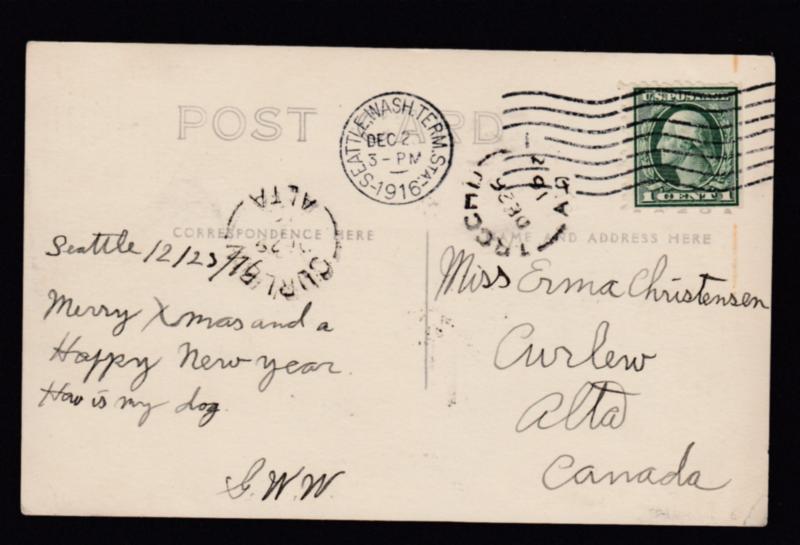 POST CARD
SEATTLE, WASH. TERM. STA.
DEC 2
3-PM
1916
U.S. POSTAGE
1 CENT 1
TROCHU
DE 26
16
ALTA
CURLEW
ALTA
CORRESPONDENCE HERE
NAME AND ADDRESS HERE
Seattle 12/23/16
Merry Xmas and a
Happy New year.
How is my dog
G.W.W.
Miss Erma Christensen
Curlew
Alta
Canada